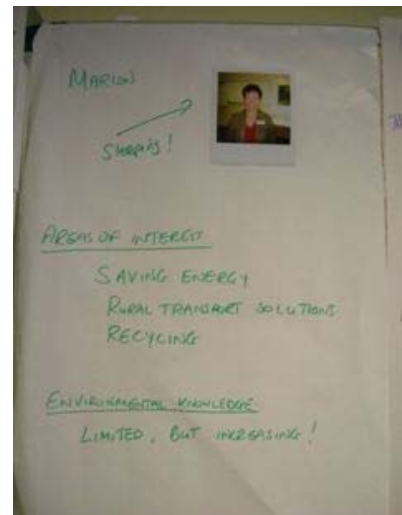 MARION
Sleeping!
AREAS OF INTEREST
SAVING ENERGY
RURAL TRANSPORT SOLUTIONS
RECYCLING
ENVIRONMENTAL KNOWLEDGE
LIMITED, BUT INCREASING!